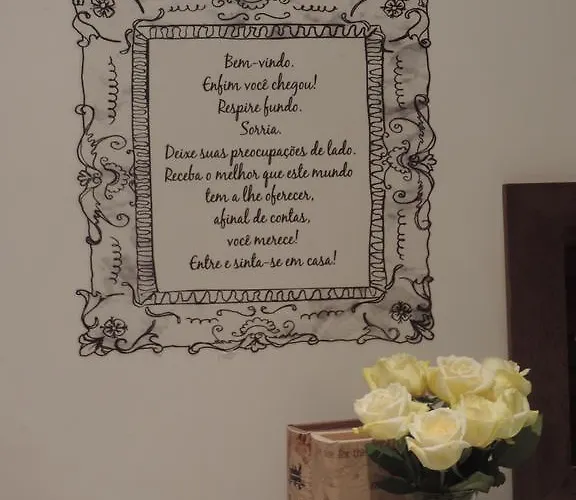 Bem-vindo.
Enfim você chegou!
Respire fundo.
Sorria.
Deixe suas preocupações de lado.
Receba o melhor que este mundo
tem a lhe oferecer,
afinal de contas,
você merece!
Entre e sinta-se em casa!
for the